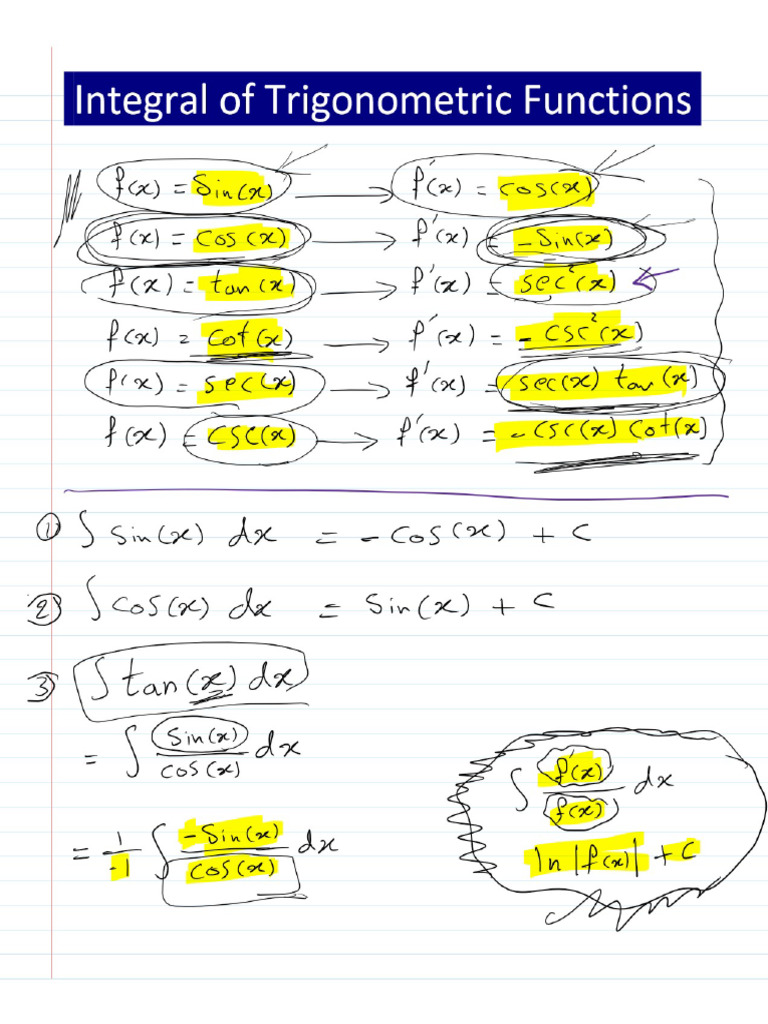 Integral of Trigonometric Functions
f(x) = Sin(x) → f'(x) = cos(x)
f(x) = cos(x) → f'(x) = -Sin(x)
f(x) = tan(x) → f'(x) = sec²(x)
f(x) = cot(x) → f'(x) = - csc²(x)
f(x) = sec(x) → f'(x) = sec(x) tan(x)
f(x) = csc(x) → f'(x) = - csc(x) cot(x)
① ∫ sin(x) dx = - cos(x) + c
② ∫ cos(x) dx = Sin(x) + c
③ ∫ tan(x) dx
= ∫ Sin(x)/cos(x) dx
= 1/-1 ∫ -Sin(x)/cos(x) dx
∫ f'(x)/f(x) dx
ln |f(x)| + c